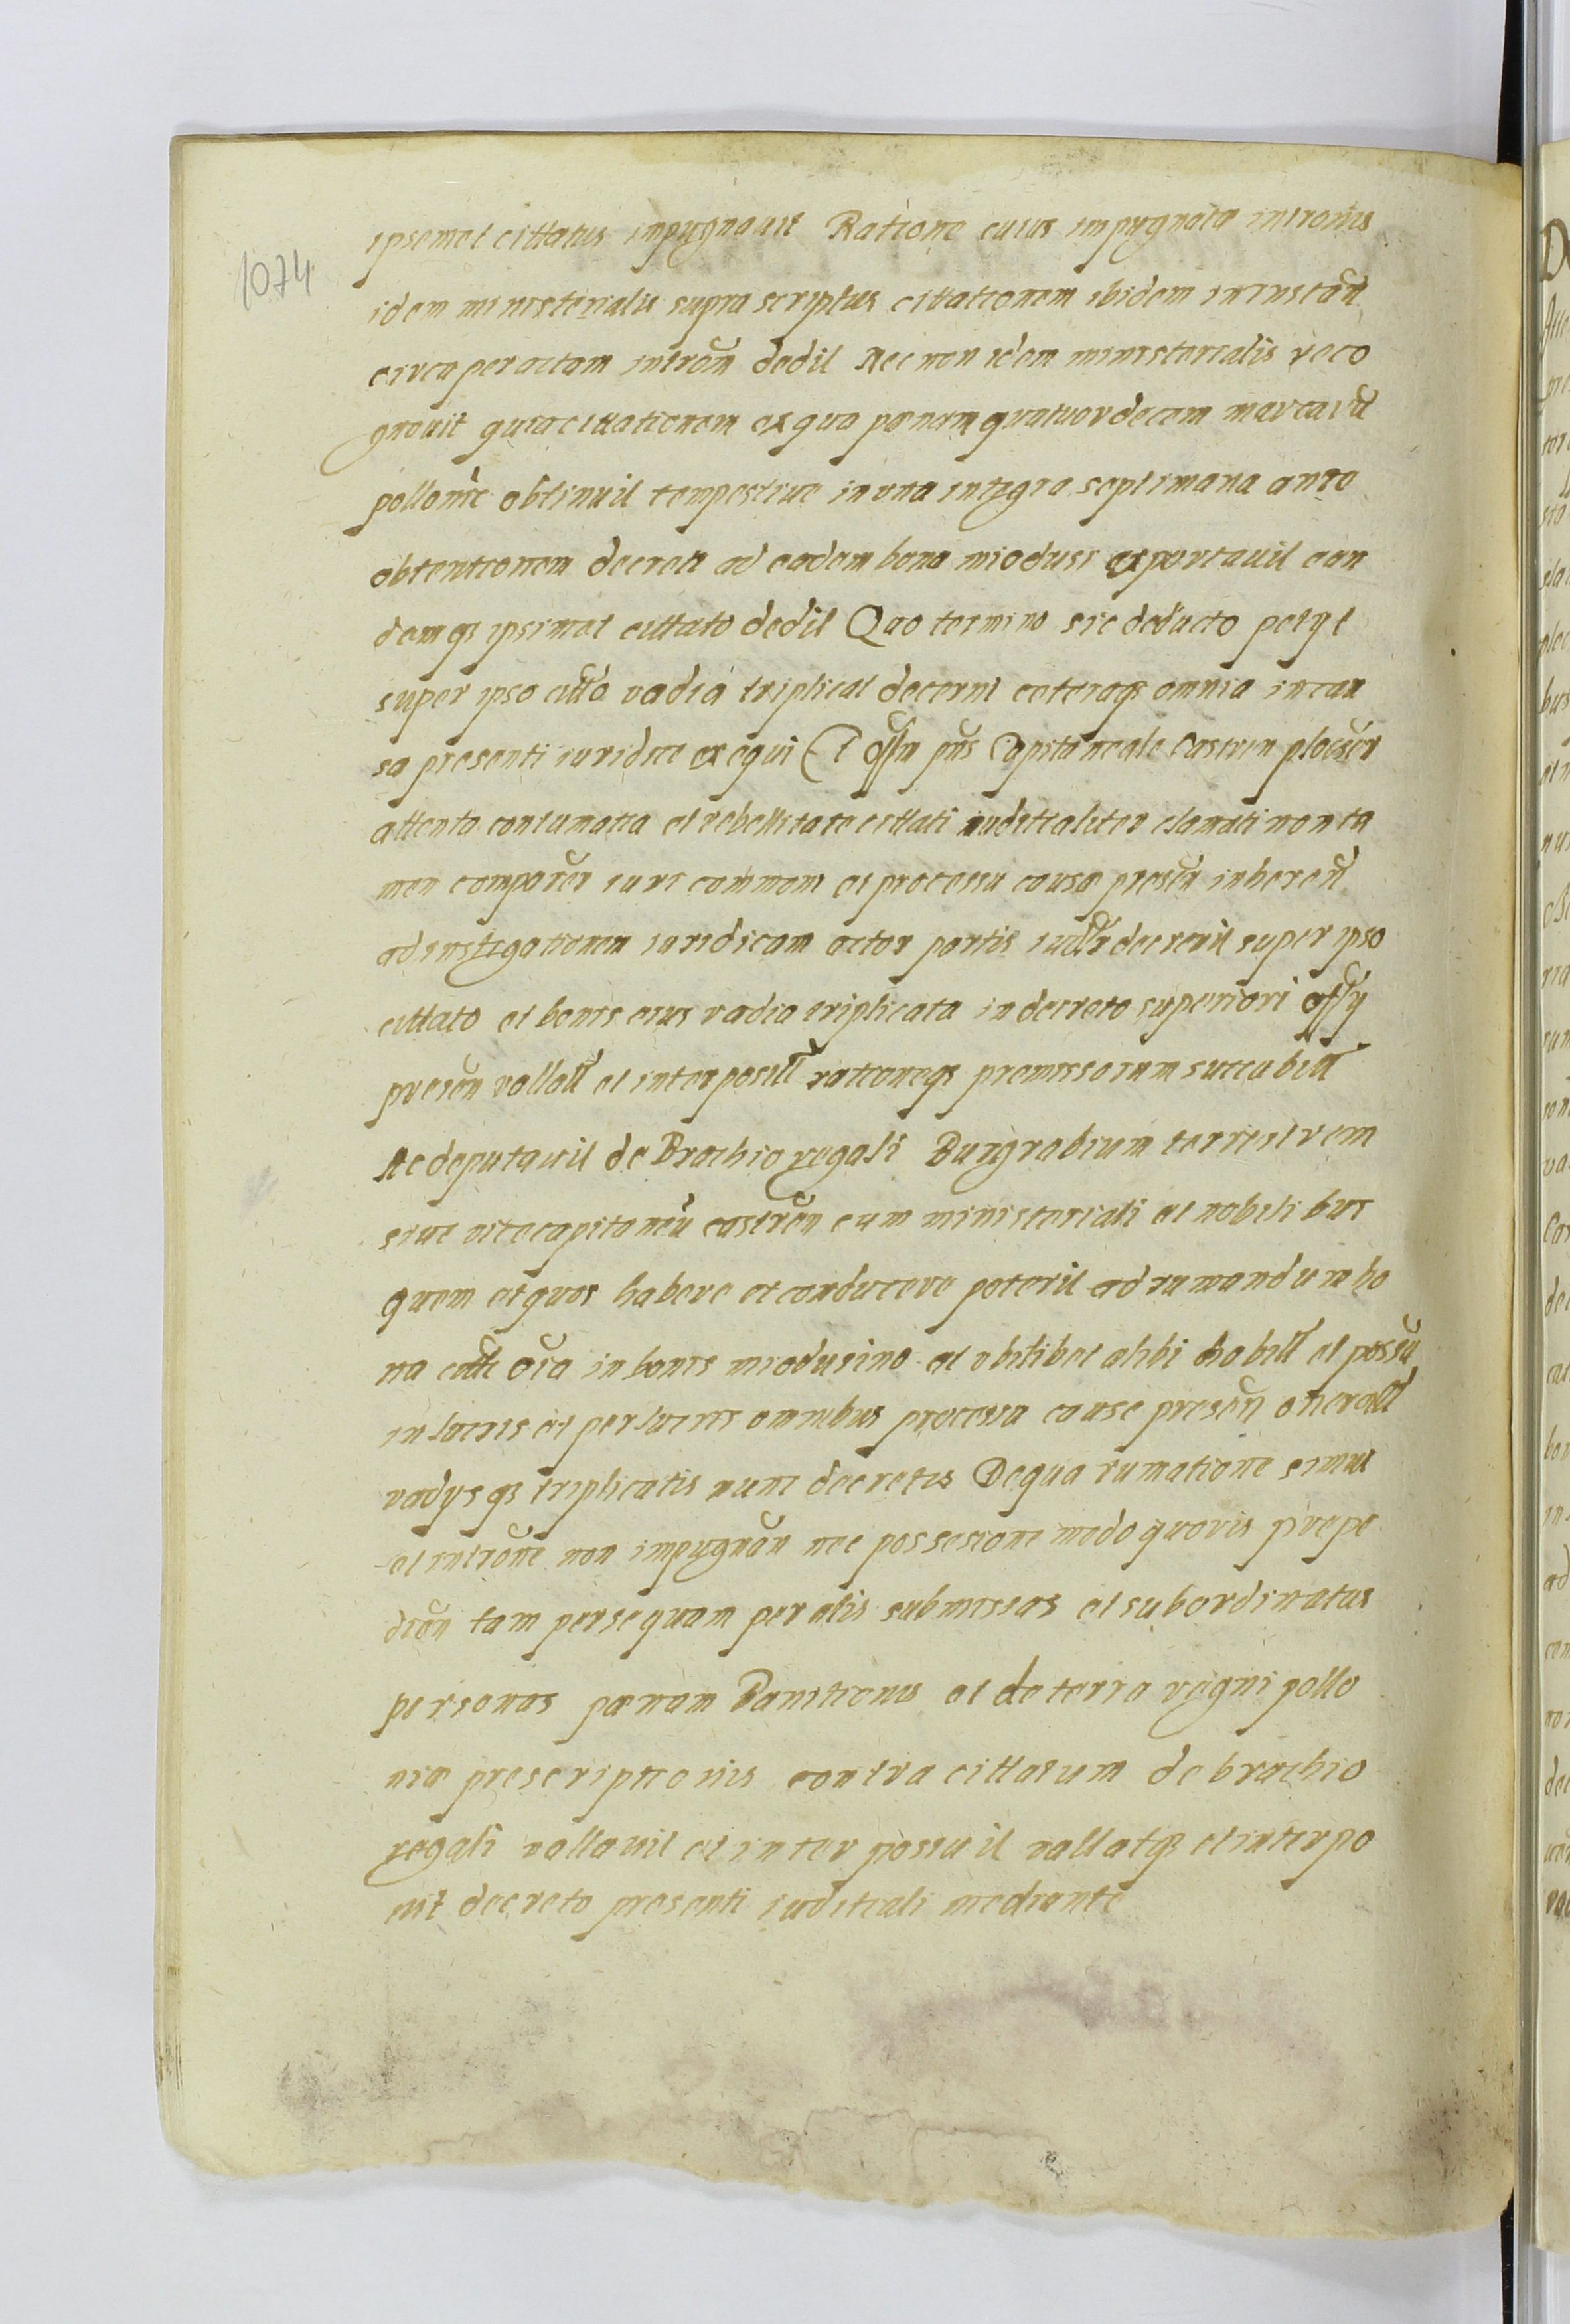 1074
ipsemet cittatus impugnauit Ratione cuius impugnata intronis
idem ministerialis supra scriptus cittationem ibidem in instan
circa peractam introm dedit Nec non idem ministerialis reco
gnouit quia cittationem ex qua pœnam quatuordecem marcaru
pollonic obtinuit tempestiue in vna integra septimana ante
obtentionem decreti ad eadem bona miodusi exportauit ean
demq ipsimet cittato dedit Quo termino sic deducto petyt
super ipso citto vadia triplicat decerni ceteraq omnia in cau
sa presenti iuridice exequi Et offm pns Capitaneale Castren plocen
attenta contumatia et rebellitate cittati iuditialiter clamati non ta
men comparen iuri commoni et processu causæ presen inheren
ad instigationem iuridicam actor partis decreuit super ipso
cittato et bonis eius vadia triplicata in decreto superiori offy
presen vallatt et interposittt rationeq premissorum succubitt
Ac deputauit de Brachio regali Burgrabium terrestrem
siue vicecapitaneu castren cum ministeriali et nobilibus
quem et quos habere et conducere poterit ad rumandum bo
na citti oia in bonis miodusino et vbilibet alibi habitt et possu
iusticiis et per iusticiis omnibus processu cause presen oneratt
vadysq triplicatis nunc decretis De qua rumatione simul
et introne non impugnan nec possesione modo quovis prepe
dien tam per se quam per alis submissas et subordinatas
personas pœnam Banitionis et de terra regni pollo
niæ prescriptionis contra cittatum de brachio
regali vallauit et inter possuit vallatq et interpo
nit decreto presenti iuditiali mediante